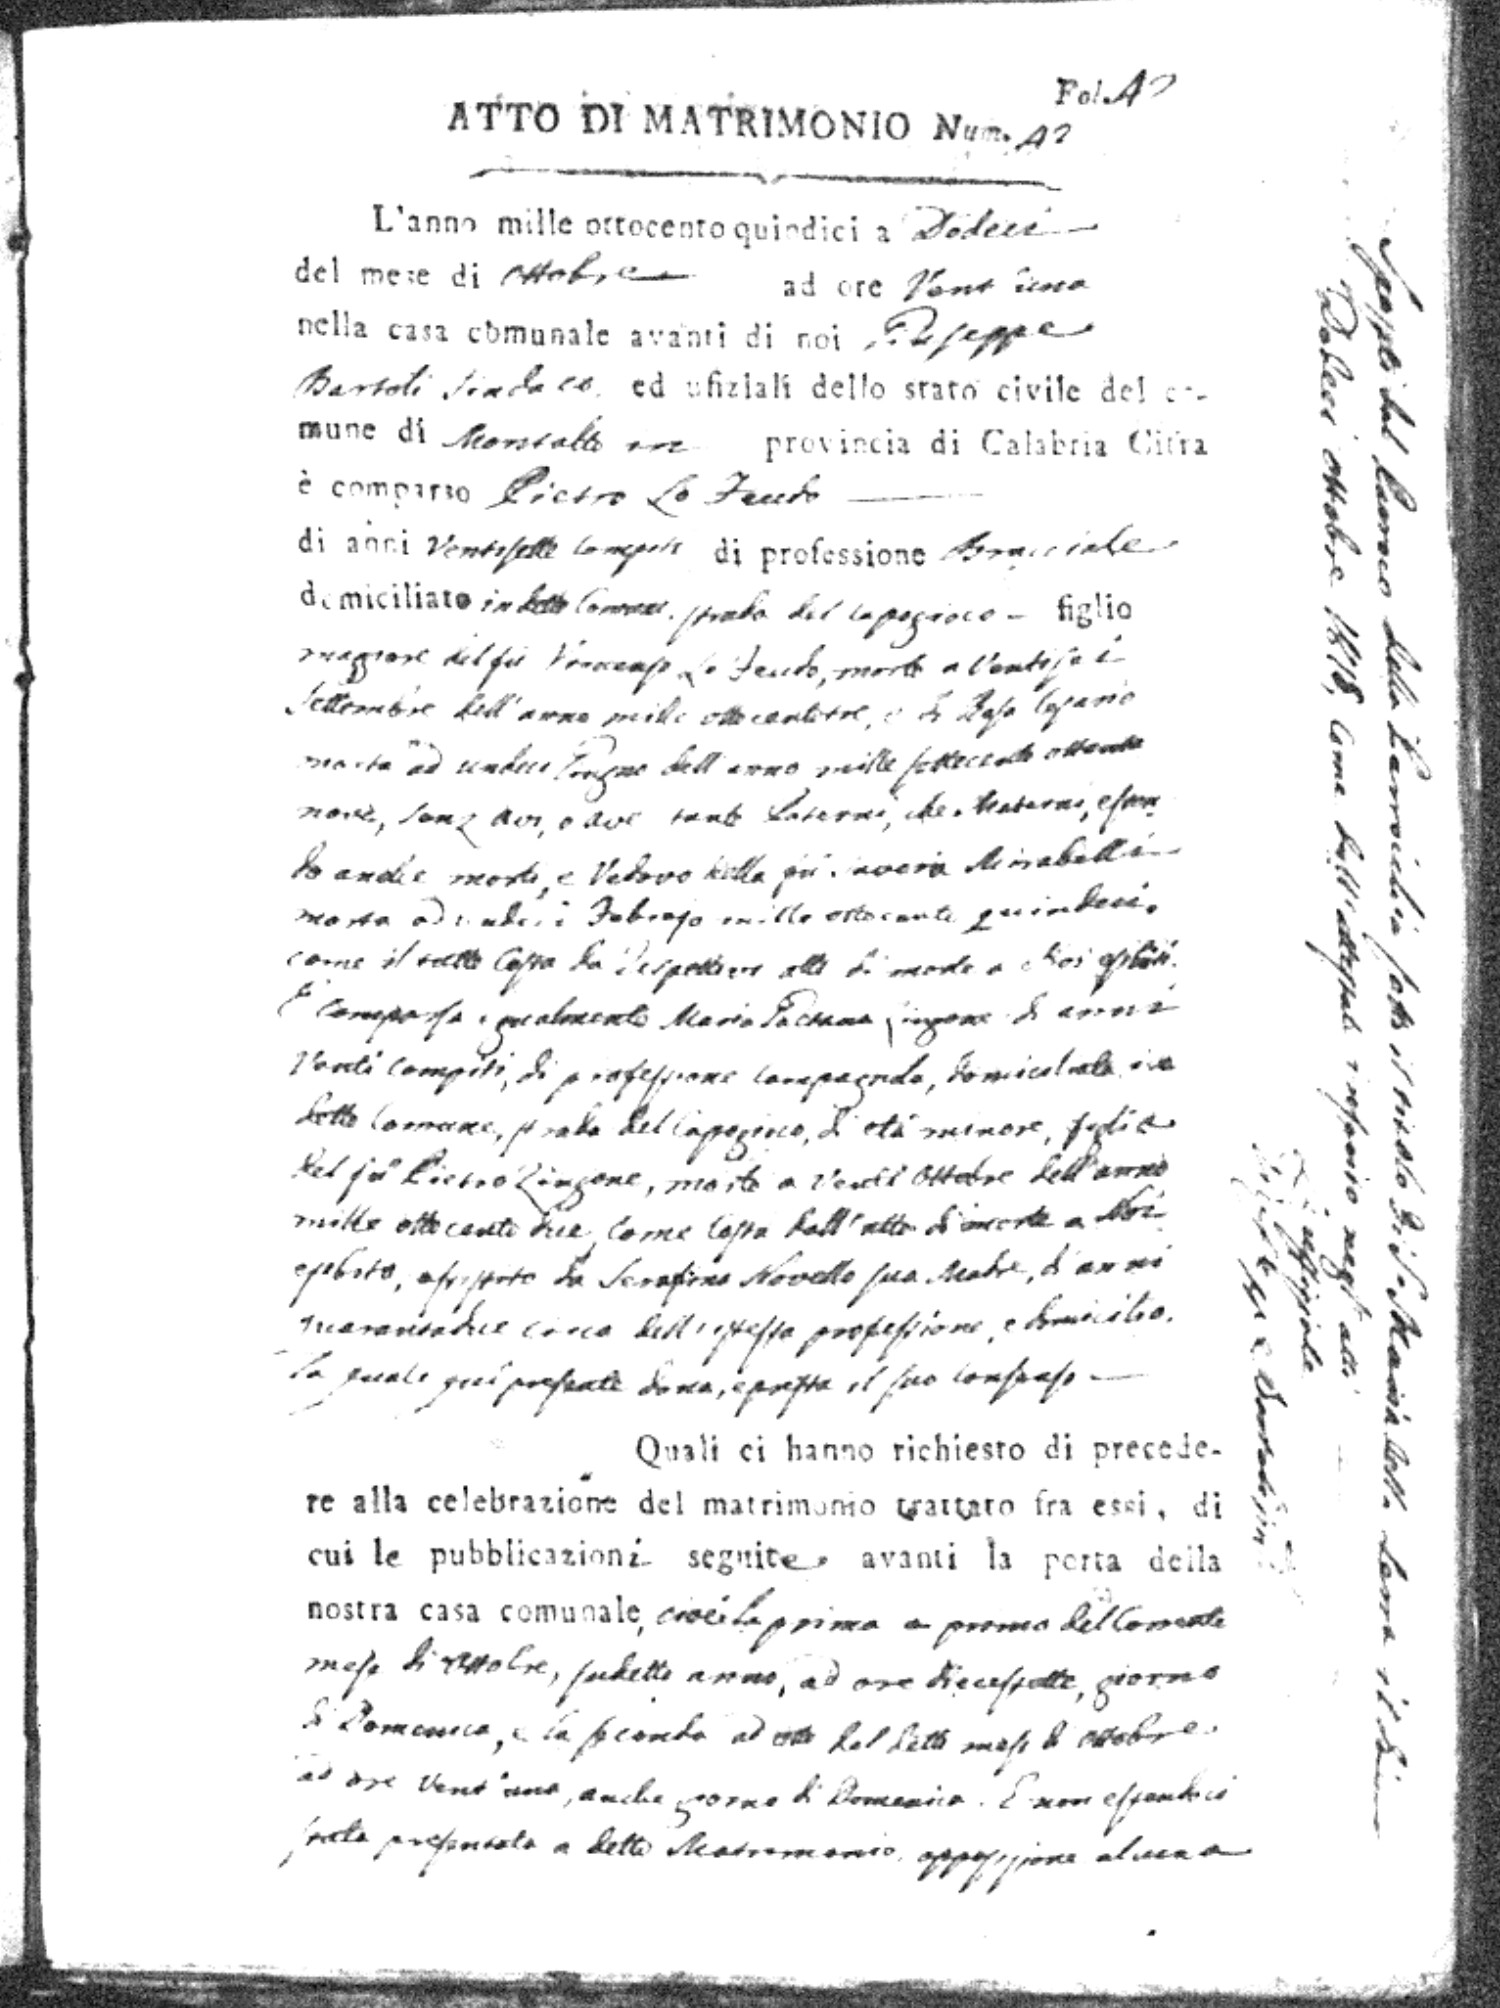 Fol.
ATTO DI MATRIMONIO Num.
L'anno mille ottocento quindici a Dodeci
del mese di Ottobre ad ore Vent'una
nella casa comunale avanti di noi Giuseppe
Bartoli Sindaco ed ufiziali dello stato civile del co-
mune di Montalto in provincia di Calabria Citra
è comparso Pietro Lo Feudo
di anni Ventisette compiti di professione Bracciale
domiciliato in detto Comune, strada del Capogioco figlio
maggiore del fù Vincenzo Lo Feudo, morto a Ventisei
Settembre dell'anno mille ottocentotre, e di Rosa
morta ad undeci Giugno dell'anno mille settecento ottanta
nove, senz avi, o ave tanto Paterni, che Materni, essen
do anche morti, e Vedovo della fù Saveria Mirabelli
morta ad undeci Febrajo mille ottocento quindeci,
come il tutto costa da rispettivi atti di morte a Noi esibiti.
È comparsa egualmente Maria Gaetana Zingone di anni
Venti compiti, di professione campagnola, domiciliata in
detto Comune, strada del Capogioco, di età minore, figlia
del fù Pietro Zingone, morto a Venti Ottobre dell'anno
mille ottocento due, come costa dall'atto di morte a Noi
esibito, assistito da Serafina Novello sua Madre, di anni
quarantadue circa dell'istessa professione, e domicilio.
la quale quì presente dona, e presta il suo consenso
Quali ci hanno richiesto di precede-
re alla celebrazione del matrimonio trattato fra essi, di
cui le pubblicazioni seguite avanti la porta della
nostra casa comunale, cioè la prima a primo del Corrente
mese di Ottobre, sudetto anno, ad ore diecessette, giorno
di Domenica, e la seconda ad otto del detto mese di Ottobre
ad ore Vent'una, anche giorno di Domenica. E non essendoci
stata presentata a detto Matrimonio opposizione alcuna
Sposati dal Parroco della Parrocchia sotto il titolo di S. Maria della Serra il dì
Dodeci Ottobre 1818, come dall'attestato inserito negl'atti
L'uffiziale